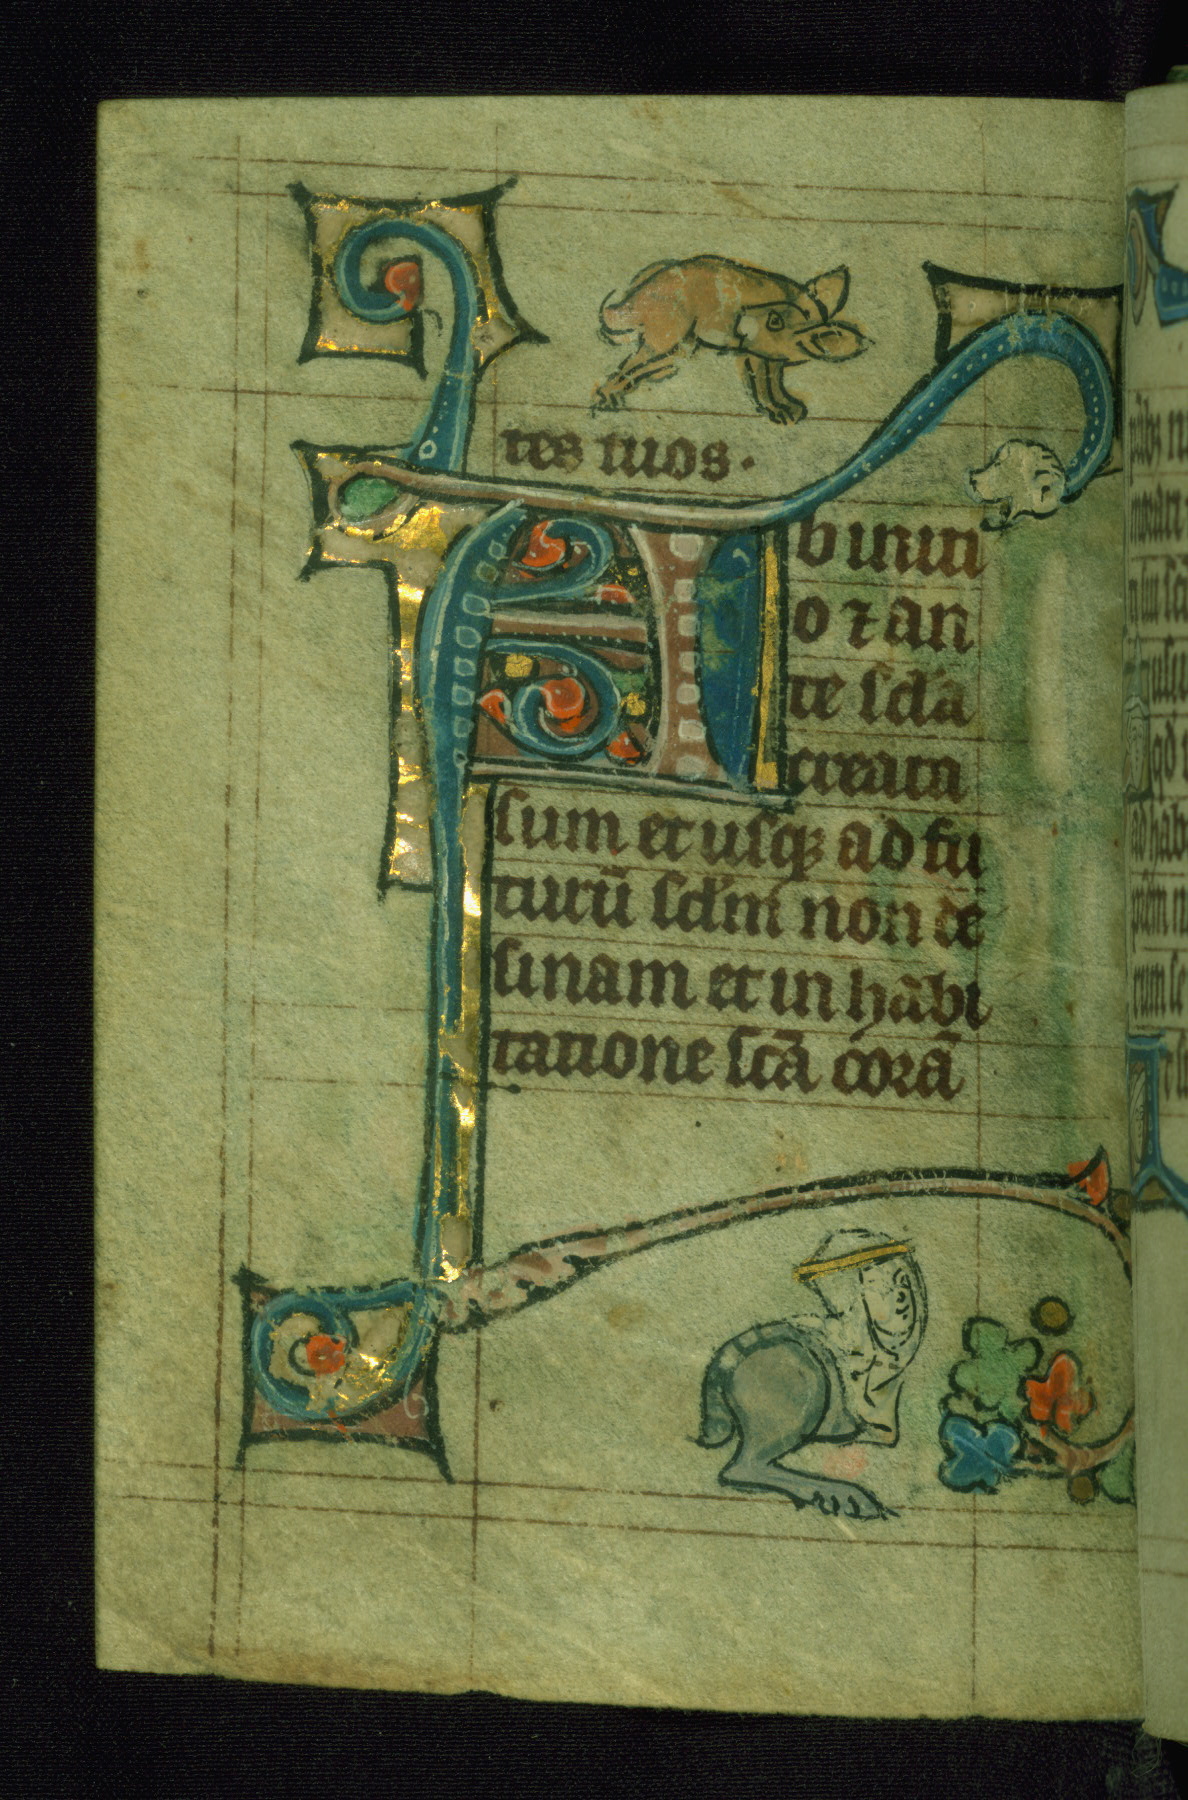 tes tuos.
A b initi
o ⁊ an
te sc̄la
creata
sum et usq; ad fu
turū sc̄lm non de
sinam et in hābi
tatione sc̄ā corā